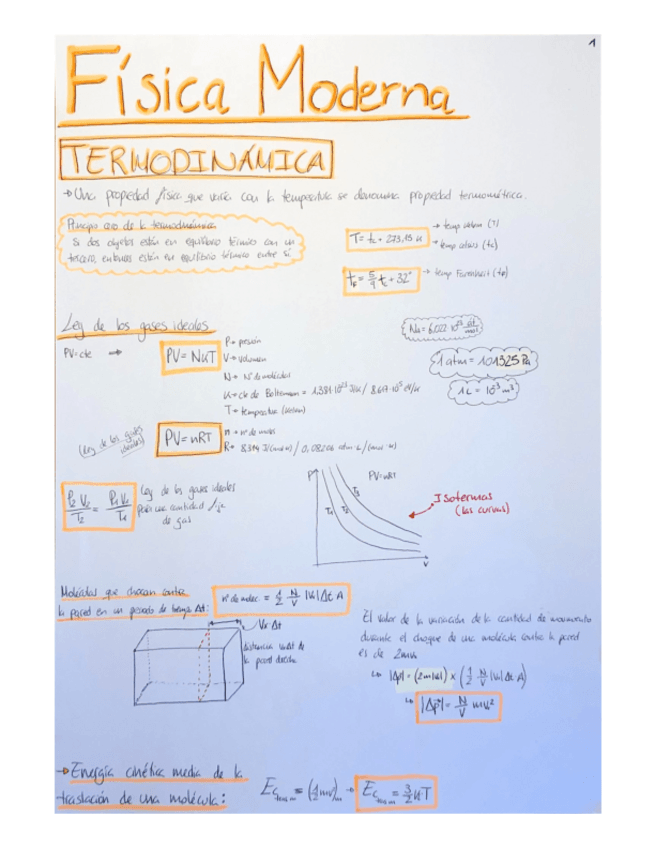 1
Física Moderna
TERMODINÁMICA
→ Una propiedad física que varía con la temperatura se denomina propiedad termométrica.
Principio cero de la termodinámica
Si dos objetos están en equilibrio térmico con un
tercero, entonces están en equilibrio térmico entre sí
T = tc + 273,15 K
→ temp kelvin (T)
→ temp celsius (tc)
tF = 5/9 tc + 32°
→ temp Farenheit (tF)
Ley de los gases ideales
PV = cte →
PV = NkT
P → presión
V → volumen
N → Nº de moléculas
K → cte de Boltzmann = 1.381·10⁻²³ J/K / 8.617·10⁻⁵ eV/K
T → temperatura (kelvin)
Na = 6,022·10²³
1 atm = 101325 Pa
1L = 10⁻³ m³
(Ley de los gases
ideales)
PV = nRT
n → nº de moles
R → 8.314 J/(mol·K) / 0,08206 atm·L/(mol·K)
P₂V₂/T₂ = P₁V₁/T₁
Ley de los gases ideales
para una cantidad fija
de gas
P
PV = nRT
T₁ T₂ T₃
V
Isotermas
(las curvas)
Moléculas que chocan contra
la pared en un periodo de tiempo Δt:
nº de molec. = 1/2 N/V |Vx| Δt A
Vx·Δt
distancia VxΔt de
la pared derecha
El valor de la variación de la cantidad de movimiento
durante el choque de una molécula contra la pared
es de 2mvx
↳ |Δp| = (2m|Vx|) × (1/2 N/V |Vx| Δt A)
↳ |Δp| = N/V mvx²
→ Energía cinética media de la
traslación de una molécula: